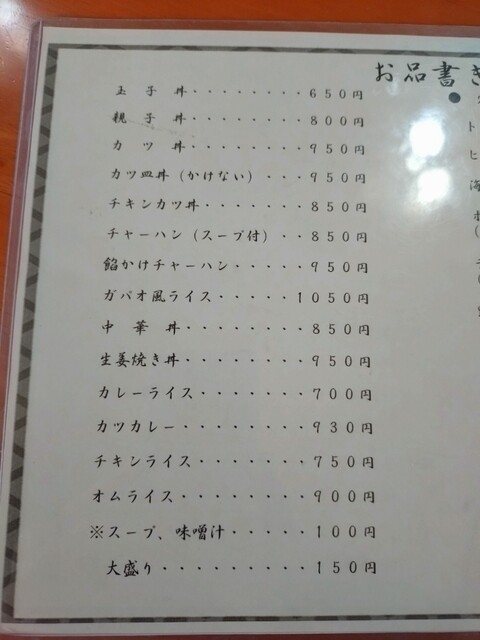 お品書き
玉子丼・・・・・・・・650円
親子丼・・・・・・・・800円
カツ丼・・・・・・・・950円
カツ皿丼(かけない)・・950円
チキンカツ丼・・・・・・850円
チャーハン(スープ付)・・850円
餡かけチャーハン・・・・・950円
ガパオ風ライス・・・・・・1050円
中華丼・・・・・・・・850円
生姜焼き丼・・・・・・・950円
カレーライス・・・・・・・700円
カツカレー・・・・・・・・930円
チキンライス・・・・・・・750円
オムライス・・・・・・・・900円
※スープ、味噌汁・・・・・100円
大盛り・・・・・・・・・150円
ト
ヒ
海